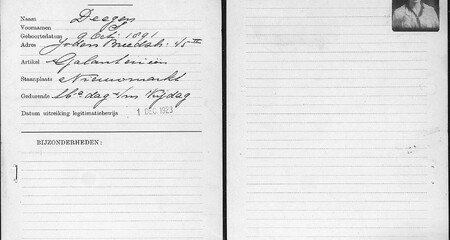 Naam Deegen
Voornamen J.
Geboortedatum 9 Oct. 1891
Adres Joden Breedstr: 45 II
Artikel Galanteriën
Staanplaats Nieuwmarkt
Gedurende Ma dag t/m Vrijdag
Datum uitreiking legitimatiebewijs 1 DEC. 1923
BIJZONDERHEDEN: